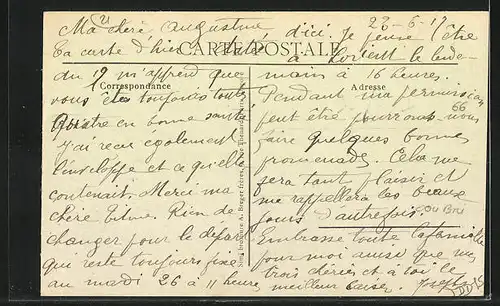 23-6-17
Ma chère Augustine
Ta carte d'hier
CARTE POSTALE
Correspondance
Adresse
du 19 m'apprend que
vous êtes toujours toutes
quatre en bonne santé
J'ai reçu également
l'enveloppe et ce qu'elle
contenait. Merci ma
chère Titine. Rien de
changer pour le départ
qui reste toujours fixé
au mardi 26 à 11 heures
d'ici. Je pense être
à Lorient le lende-
main à 16 heures.
Pendant ma permission
peut être pourrons-nous
faire quelques bonnes
promenades. Cela me
fera tant plaisir et
me rappellera les beaux
jours d'autrefois.
Embrasse toute la famille
pour moi ainsi que mes
trois chéries et à toi le
meilleur baiser.
66